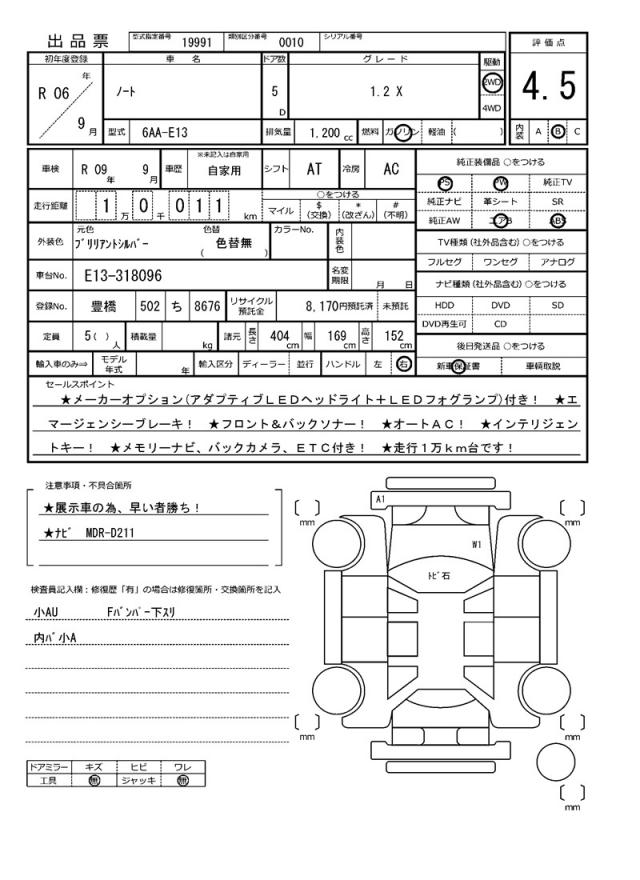 出品票 型式指定番号 19991 類別区分番号 0010 シリアル番号
評価点
4.5
内装 A B C
初年度登録 車名 ドア数 グレード 駆動
R 06 年 9 月
ノート
5 D
1.2 X
2WD
4WD
型式 6AA-E13 排気量 1.200 cc 燃料 ガソリン 軽油 ( )
車検 R 09 年 9 月 車歴 ※未記入は自家用 自家用 シフト AT 冷房 AC
走行距離 1 万 0 千 0 1 1 km ○をつける
マイル $ (交換) * (改ざん) # (不明)
外装色 元色 ブリリアントシルバー 色替 ( 色替無 ) カラーNo. 内装色
車台No. E13-318096 名変期限 月 日
登録No. 豊橋 502 ち 8676 リサイクル預託金 8,170円預託済 未預託
定員 5( ) 人 積載量 kg 諸元 長さ 404 cm 幅 169 cm 高さ 152 cm
輸入車のみ⇒ モデル年式 年 輸入区分 ディーラー 並行 ハンドル 左 右
純正装備品 ○をつける
PS PW 純正TV
純正ナビ 革シート SR
純正AW エアB ABS
TV種類(社外品含む) ○をつける
フルセグ ワンセグ アナログ
ナビ種類(社外品含む) ○をつける
HDD DVD SD
DVD再生可 CD
後日発送品 ○をつける
新車保証書 車輌取説
セールスポイント
★メーカーオプション(アダプティブLEDヘッドライト+LEDフォグランプ)付き! ★エ
マージェンシーブレーキ! ★フロント&バックソナー! ★オートAC! ★インテリジェン
トキー! ★メモリーナビ、バックカメラ、ETC付き! ★走行1万km台です!
注意事項・不具合箇所
★展示車の為、早い者勝ち!
★ナビ MDR-D211
検査員記入欄:修復歴「有」の場合は修復箇所・交換箇所を記入
小AU Fバンパー下スリ
内パ小A
ドアミラー キズ ヒビ ワレ
工具 無 ジャッキ 無
A1
W1
トビ石
mm
mm
mm
mm
mm